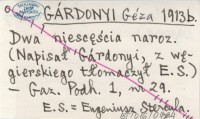 GÁRDONYI Géza 1913b.
Dwa nieszczęścia naroz.
(Napisał Gárdonyi, z wę-
gierskiego tłomaczył E.S.)
— Gaz. Podh. 1, nr 29.
E.S. = Eugeniusz Stercula.